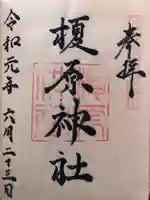 奉拝
榎原神社
令和元年六月二十三日